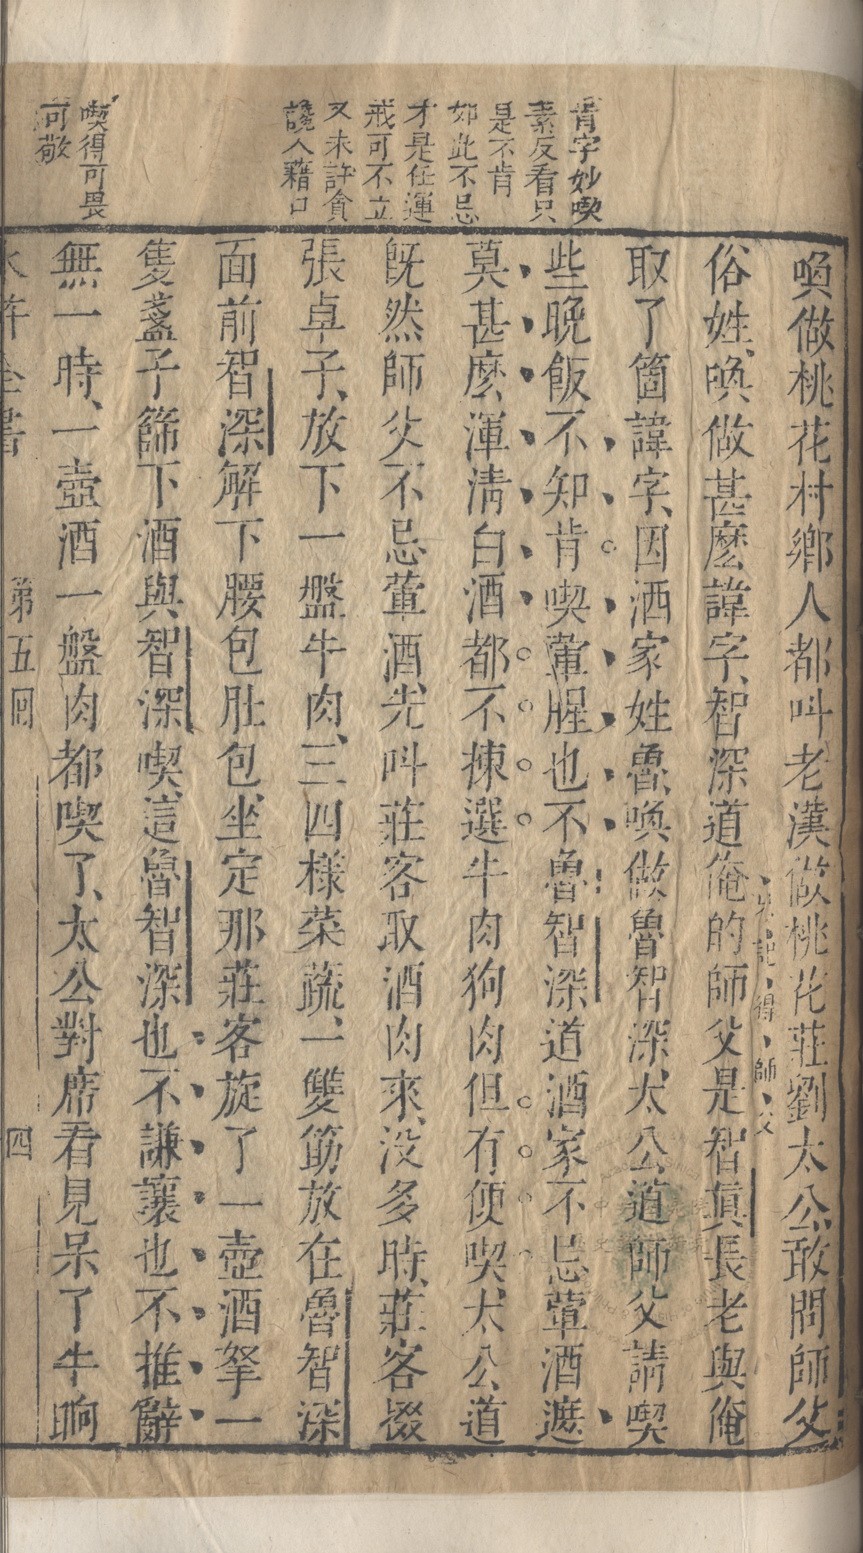 肯字妙喫
素反看只
是不肯
如此不忌
才是任運
戒可不立
又未許貪
饞人藉口
喫得可畏
可敬
喚做桃花村鄉人都叫老漢做桃花莊劉太公敢問師父
俗姓、喚做甚麽諱字、智深道俺的師父是智真長老與俺
記得師父
取了箇諱字、因洒家姓魯、喚做魯智深、太公道師父請喫
些晚飯不知肯喫葷腥也不魯智深道洒家不忌葷酒遮
莫甚麽渾清白酒都不揀選牛肉狗肉但有便喫、太公道
既然師父不忌葷酒、先叫莊客取酒肉來、没多時、莊客掇
張卓子、放下一盤牛肉、三四樣菜蔬、一雙筯放在魯智深
面前智深解下腰包肚包、坐定那莊客旋了一壺酒拏一
隻盞子篩下酒與智深喫、這魯智深也不謙讓也不推辭
無一時、一壺酒一盤肉都喫了、太公對席看見呆了半晌
水滸全書
第五回
四